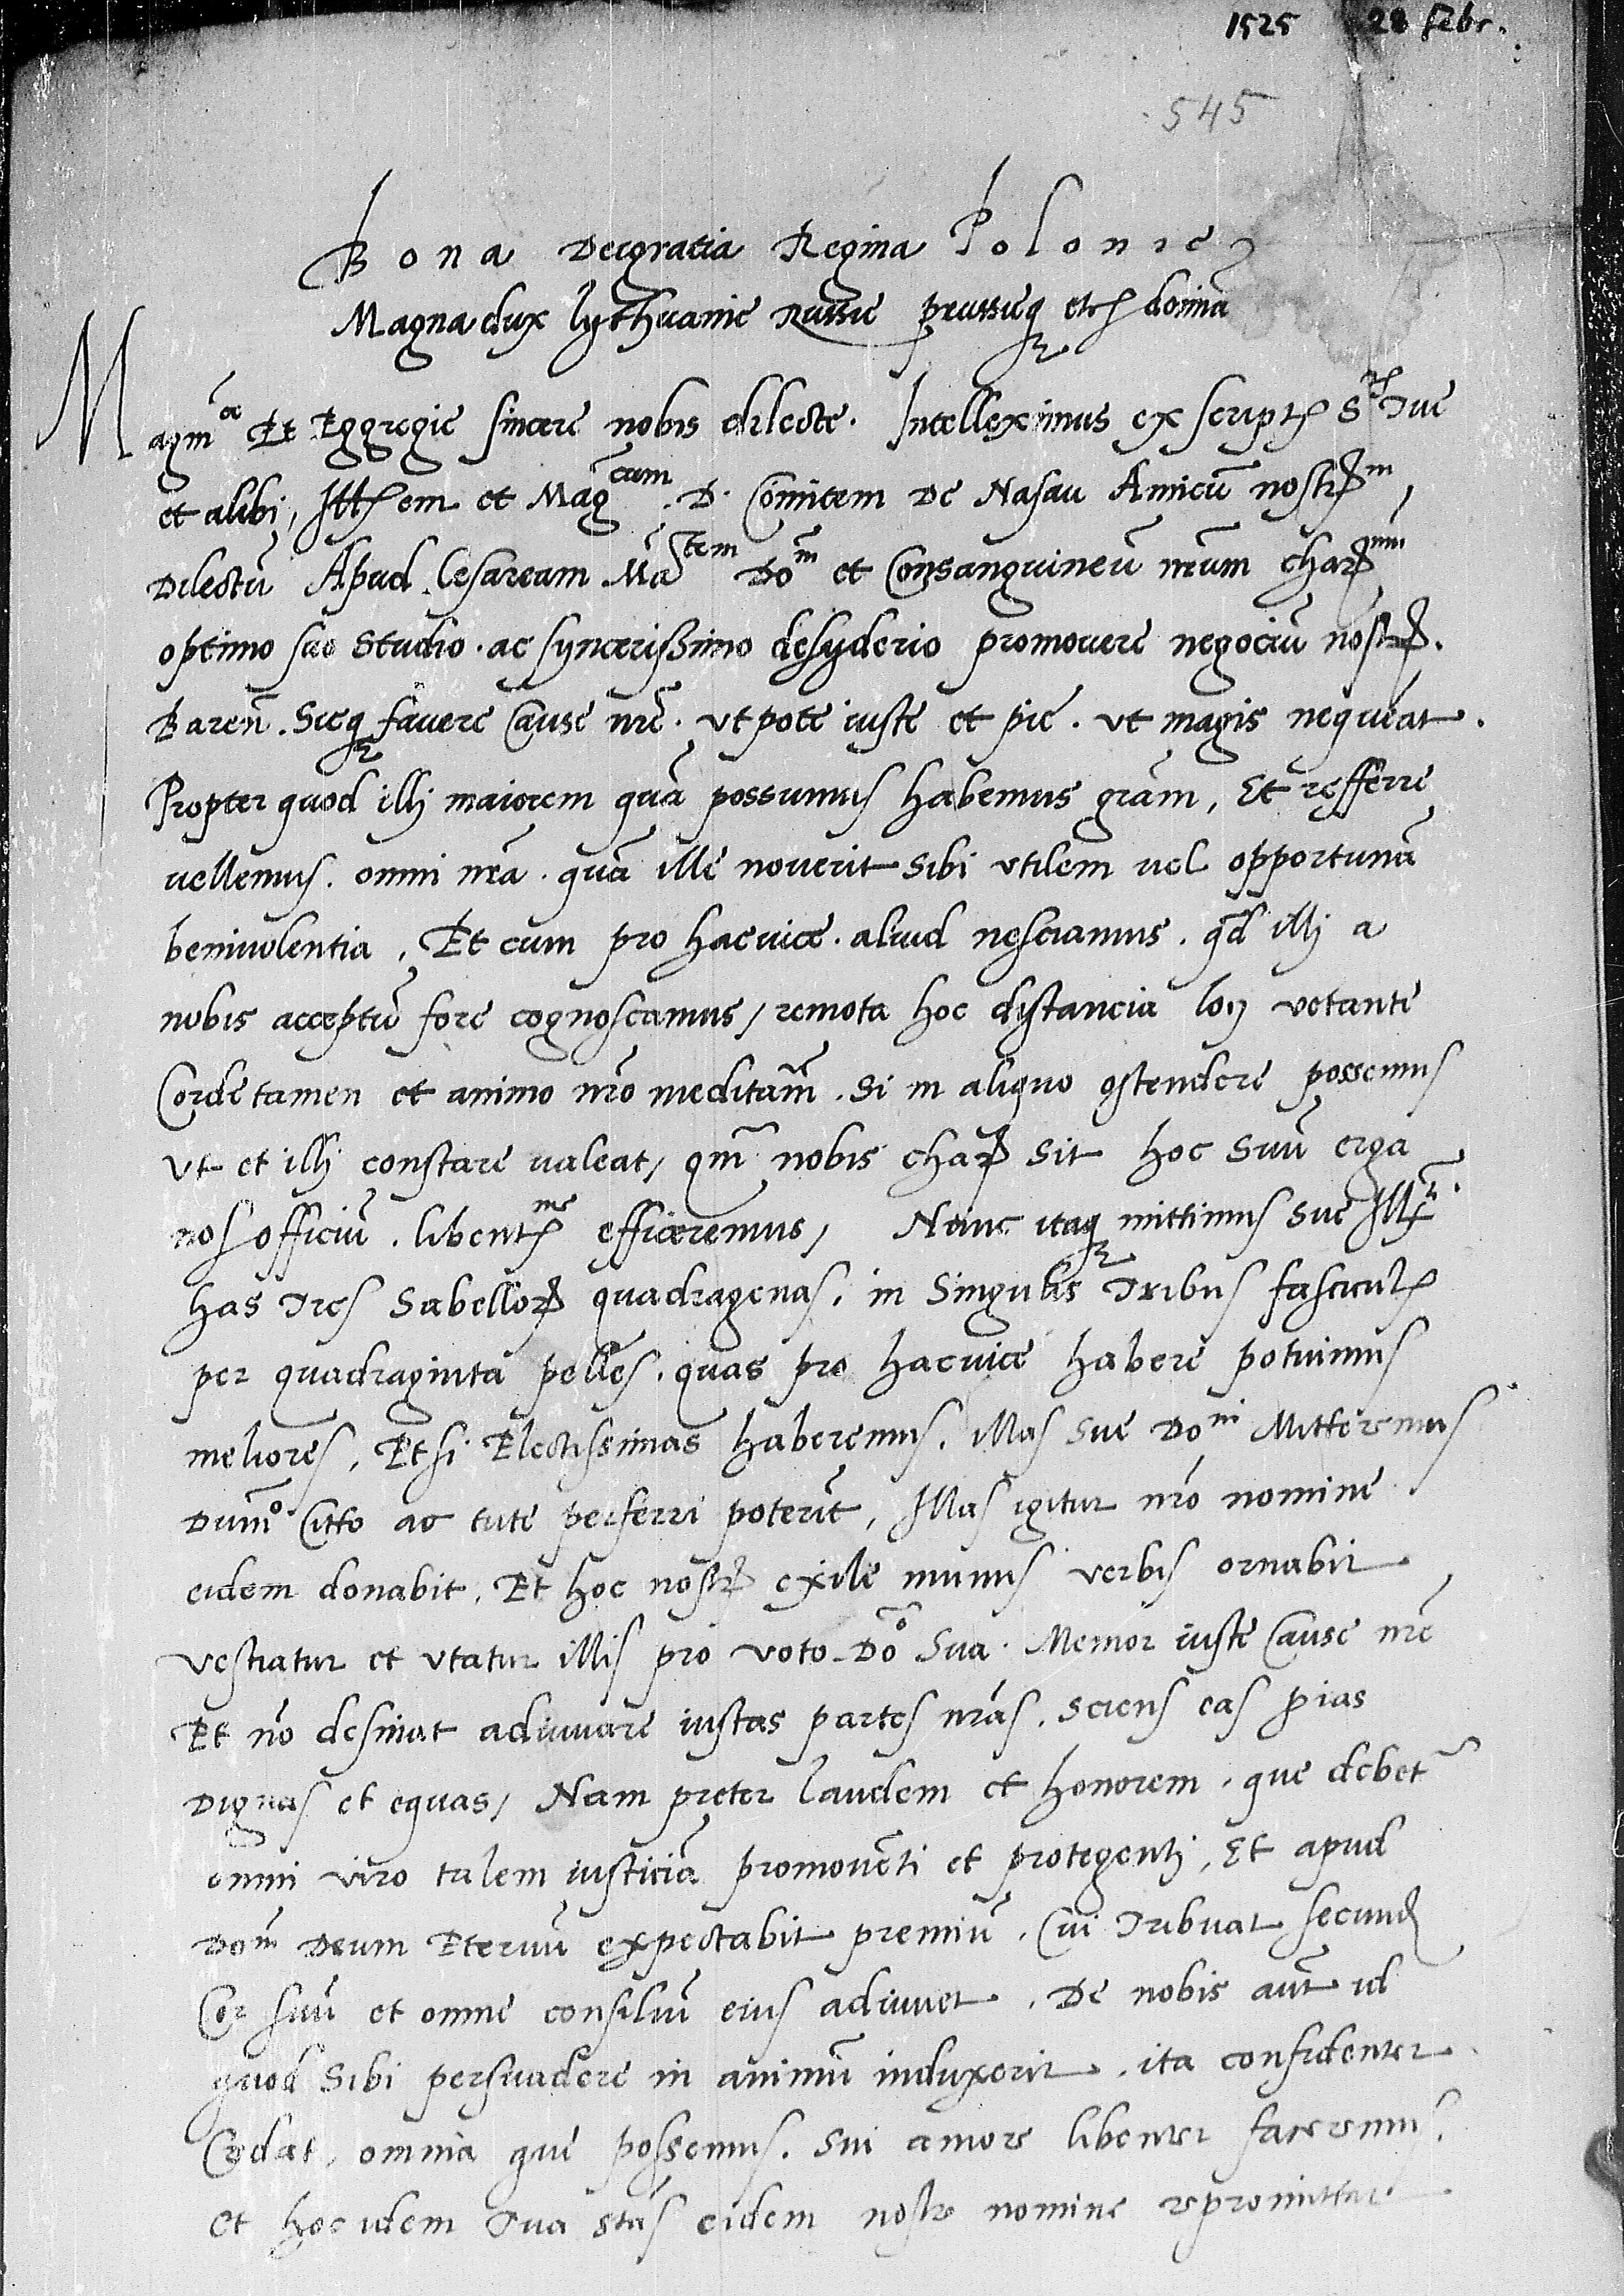 1525 28 Febr.
545
Bona Dei gratia Regina Polonie
Magna dux lythuanie Russie prussieq etc domina
Magce Et Eggregie sincere nobis dilecte. Intelleximus ex script S Tue
et alibi, Illem et Magcum. D. Comitem De Nasau Amicū nostrm,
Dilectū Apud Cesaream Mātem Dom̄ et Consanguineū nrum charmum
optimo suo studio. ac syncerissimo desyderio promovere negociū nostr.
Baren̄. Sicq favere Cause nre. ut pote iuste et pie. ut magis nequeat.
Propter quod illj maiorem quā possumus habemus grām, Et refferre
vellemus. omni nrā. quā ille noverit sibi utilem vel opportunā
benivolentia. Et cum pro hac vice. aliud nesciamus. qd illj a
nobis acceptū fore cognoscamus, remota hoc dystancia locj vetante
Corde tamen et animo nrō meditam̄. Si in aliquo ostendere possemus
Ut et illj constare valeat, qm̄ nobis char sit hoc suū erga
nos officiū. libentme efficeremus, Nunc itaq mittimus Sue Ill
has Tres Sabellor quadragenas. in Singulis Tribus fascicul
per quadraginta pelles. quas pro hac vice habere potuimus
meliores. Et si Electissimas haberemus. illas Sue Doni Mitteremus
Dum̄o Citto ac tute perferri poterīt, Illas igitur nrō nomine
eidem donabit. Et hoc nostr exile munus verbis ornabit
vestiatur et utatur illis pro voto Dō Sua. Memor iuste Cause nrē
Et nō desinat adiuvare iustas partes nrās. sciens eas pias
Dignas et equas, Nam preter laudem et honorem. que debet
omni viro talem iusticiā promovēti et protegentj, Et apud
Dom̄ Deum Eternū expectabit premiū. Cui Tribuat secund
Cor suū et omne consiliū eius adiuvet. De nobis aūt id
quod Sibi persuadere in animū induxerit. ita confidenter
Credat, omnia que possemus. Sui amore libenter faceremus.
Et hoc idem Tua Stās eidem nostr nomine repromittat